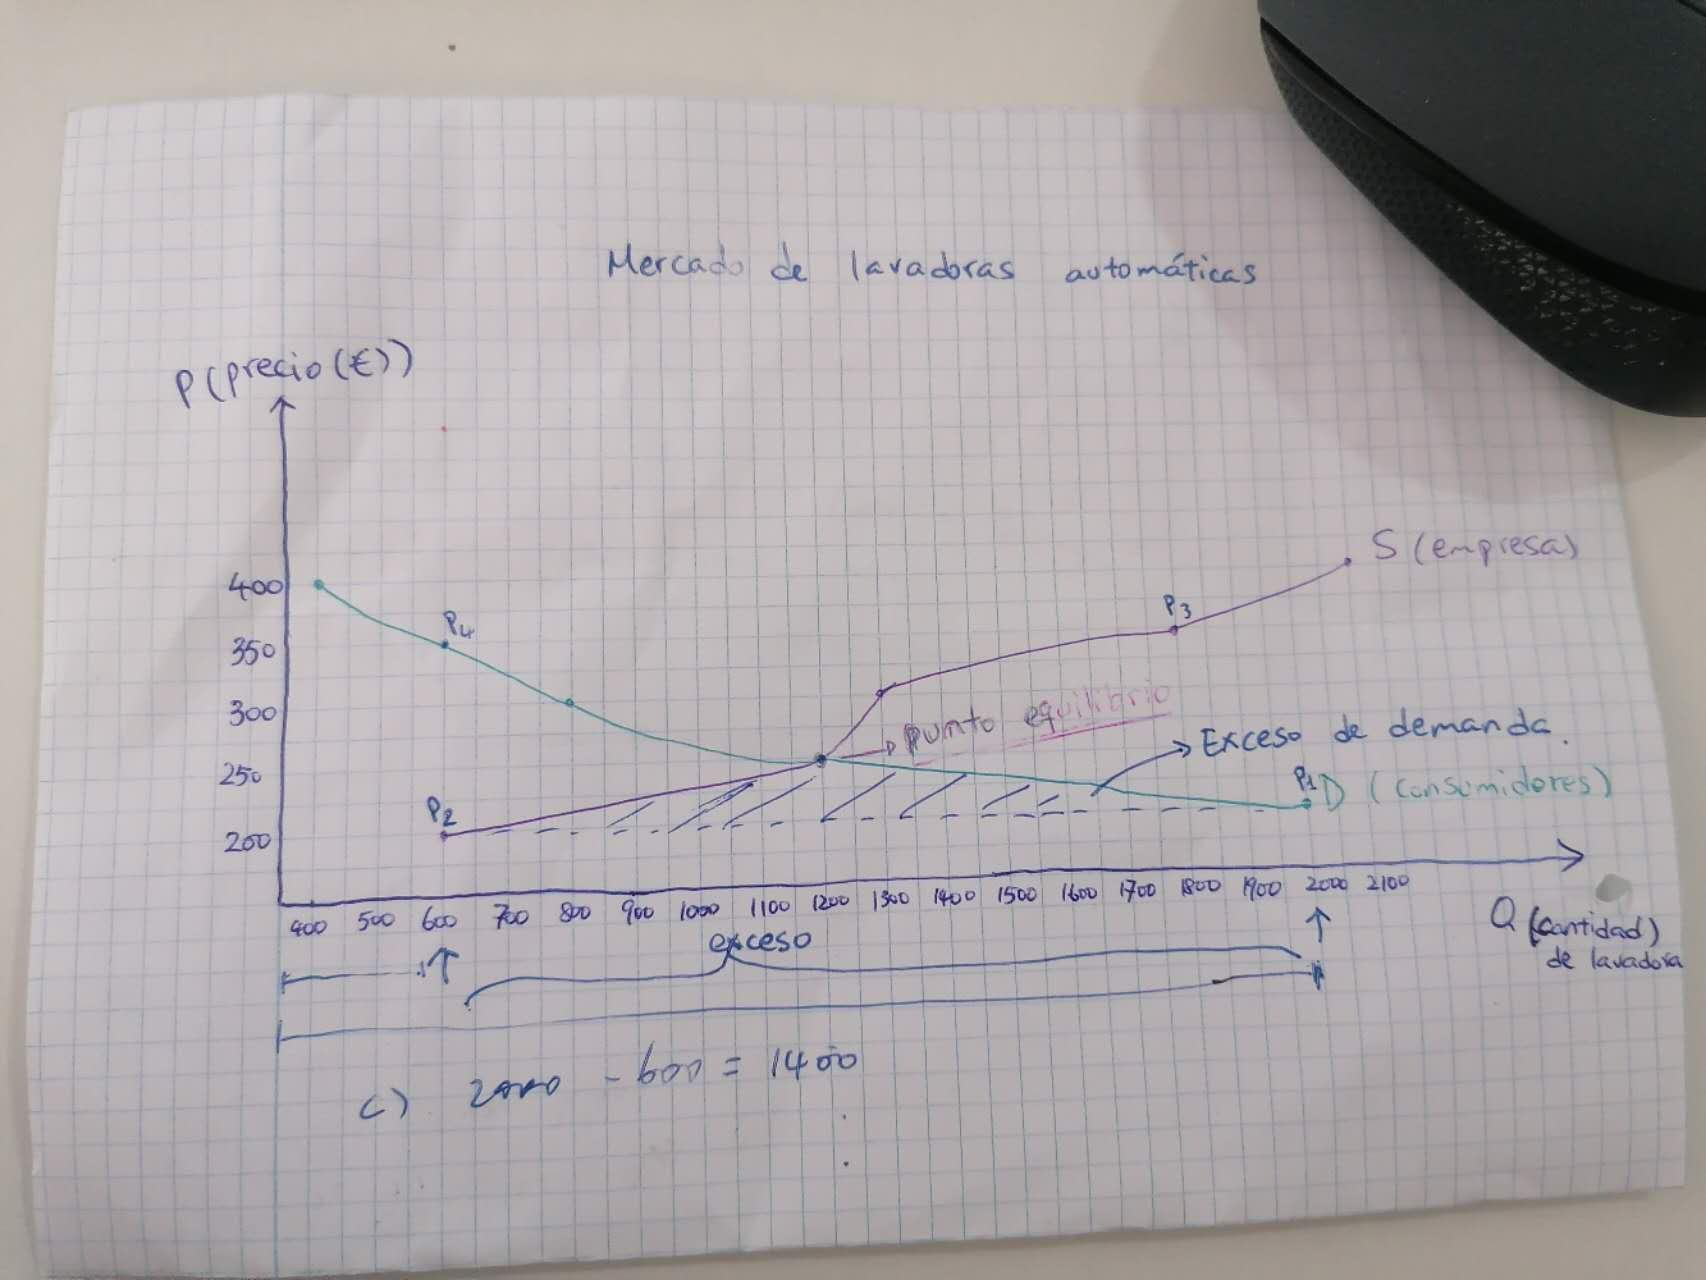 Mercado de lavadoras automáticas
P (precio (€))
400
350
300
250
200
P4
P3
S (empresa)
punto equilibrio
Exceso de demanda.
P2
P1
D (consumidores)
400 500 600 700 800 900 1000 1100 1200 1300 1400 1500 1600 1700 1800 1900 2000 2100
Q (cantidad)
de lavadora
exceso
c) 2000 - 600 = 1400